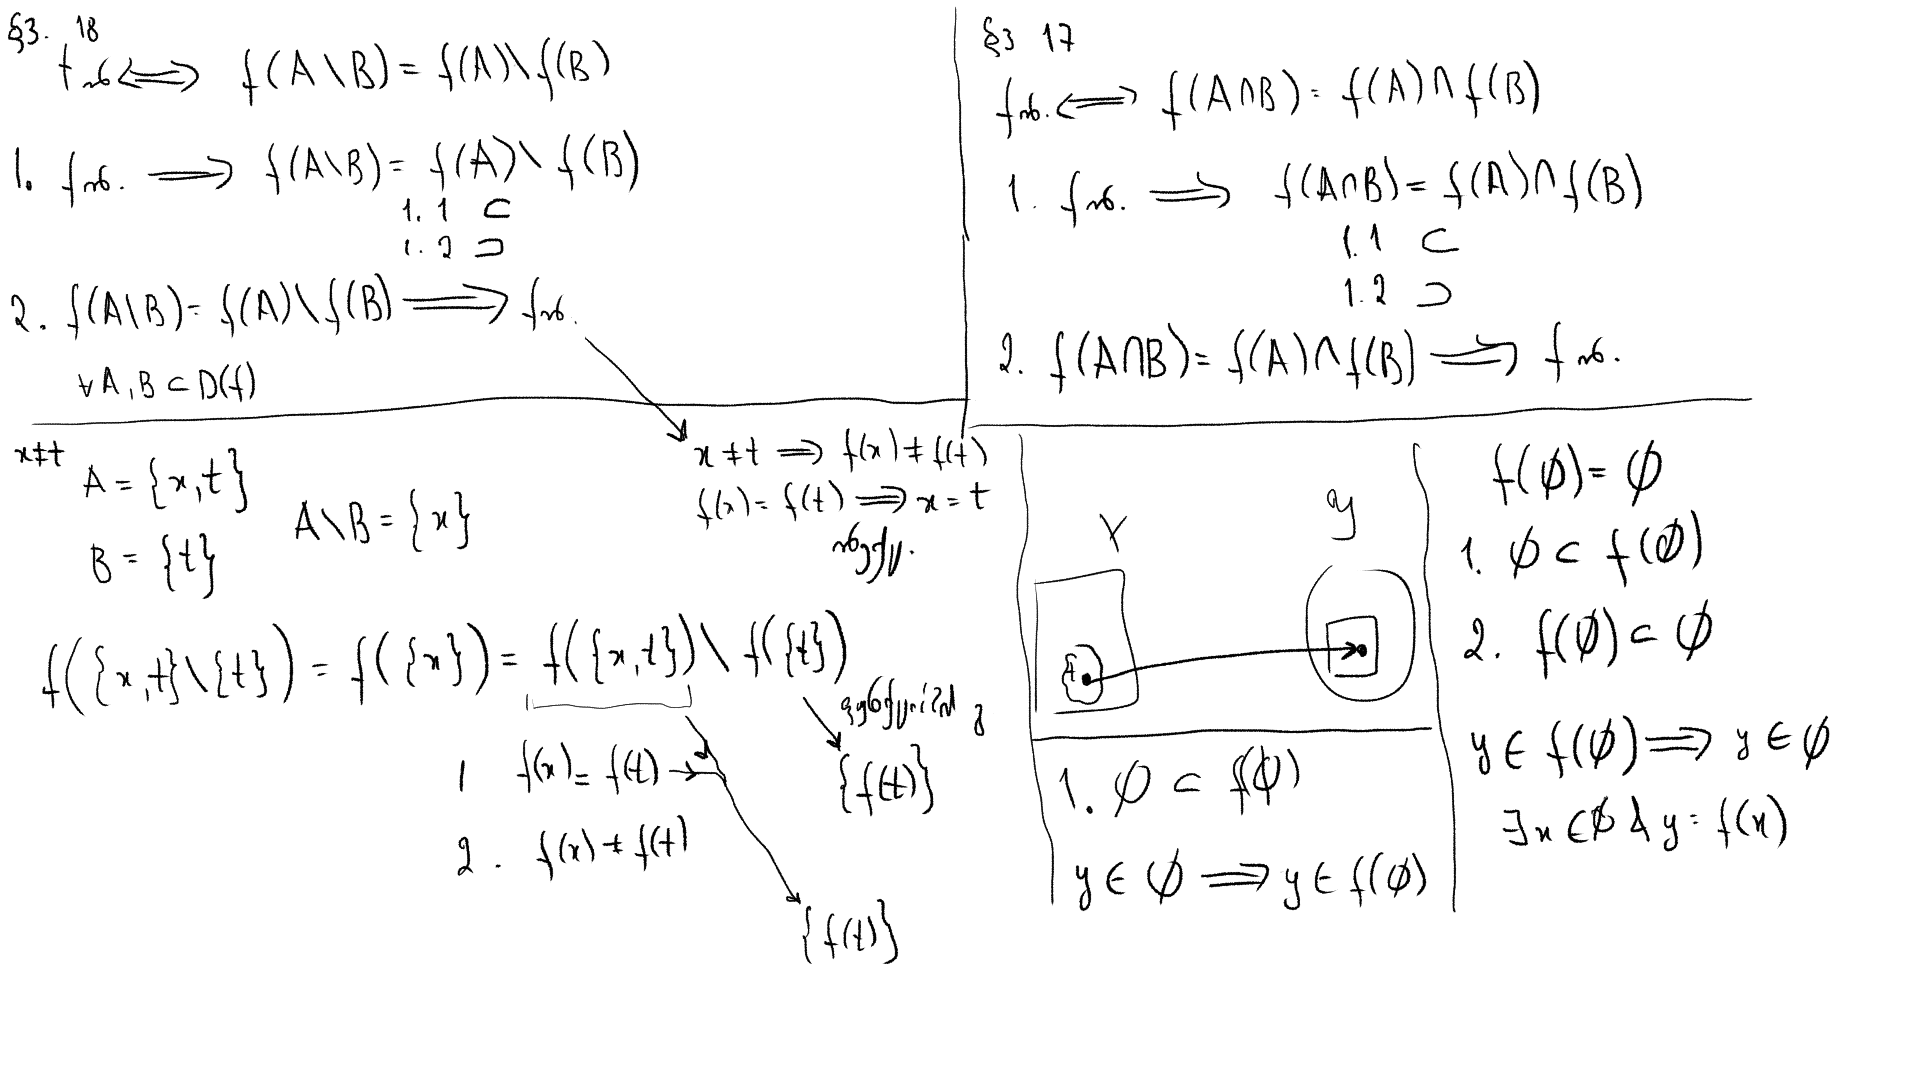 §3. 18
f ⟺ f(A\B) = f(A)\f(B)
1. f ⟹ f(A\B) = f(A)\f(B)
1.1 ⊂
1.2 ⊃
2. f(A\B) = f(A)\f(B) ⟹ f
∀A,B ⊂ D(f)
§3 17
f ⟺ f(A∩B) = f(A)∩f(B)
1. f ⟹ f(A∩B) = f(A)∩f(B)
1.1 ⊂
1.2 ⊃
2. f(A∩B) = f(A)∩f(B) ⟹ f
x≠t
A = {x,t}
B = {t}
A\B = {x}
x ≠ t ⟹ f(x) ≠ f(t)
f(x) = f(t) ⟹ x = t
f({x,t}\{t}) = f({x}) = f({x,t})\f({t})
1 f(x) = f(t) →
2. f(x) ≠ f(t)
{f(t)}
{f(t)}
X
Y
1. ∅ ⊂ f(∅)
y ∈ ∅ ⟹ y ∈ f(∅)
f(∅) = ∅
1. ∅ ⊂ f(∅)
2. f(∅) ⊂ ∅
y ∈ f(∅) ⟹ y ∈ ∅
∃x ∈ ∅ & y = f(x)